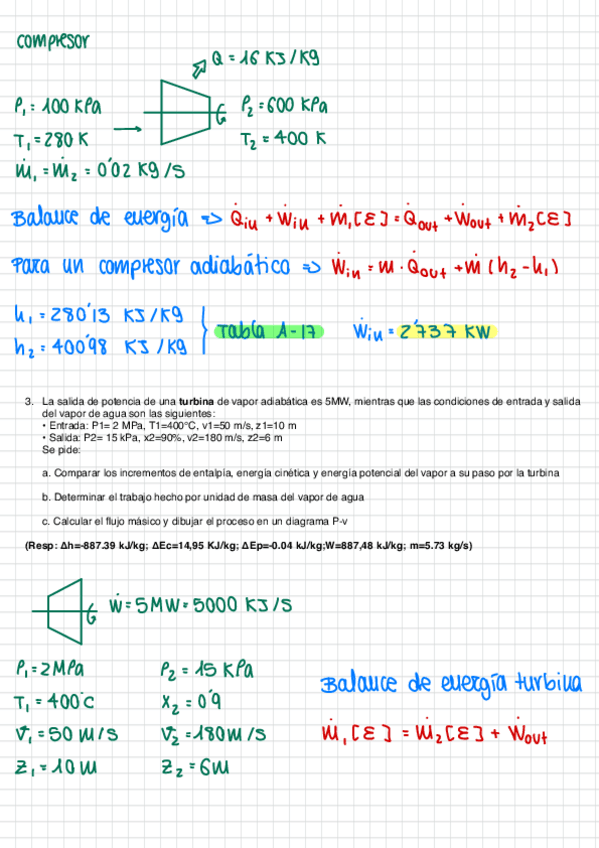 compresor
Q = 16 KJ/Kg
P₁ = 100 KPa
P₂ = 600 KPa
T₁ = 280 K
T₂ = 400 K
ṁ₁ = ṁ₂ = 0'02 Kg/s
Balance de energía => Q̇in + Ẇin + ṁ₁[E] = Q̇out + Ẇout + ṁ₂[E]
Para un compresor adiabático => Ẇin = m · Q̇out + ṁ (h₂ - h₁)
h₁ = 280'13 KJ/Kg
h₂ = 400'98 KJ/Kg
Tabla A-17
Ẇin = 2'737 KW
3. La salida de potencia de una turbina de vapor adiabática es 5MW, mientras que las condiciones de entrada y salida
del vapor de agua son las siguientes:
• Entrada: P1= 2 MPa, T1=400°C, v1=50 m/s, z1=10 m
• Salida: P2= 15 kPa, x2=90%, v2=180 m/s, z2=6 m
Se pide:
a. Comparar los incrementos de entalpía, energía cinética y energía potencial del vapor a su paso por la turbina
b. Determinar el trabajo hecho por unidad de masa del vapor de agua
c. Calcular el flujo másico y dibujar el proceso en un diagrama P-v
(Resp: Δh=-887.39 kJ/kg; ΔEc=14,95 KJ/kg; ΔEp=-0.04 kJ/kg;W=887,48 kJ/kg; m=5.73 kg/s)
Ẇ = 5MW = 5000 KJ/s
P₁ = 2MPa
P₂ = 15 KPa
T₁ = 400°C
X₂ = 0'9
V₁ = 50 m/s
V₂ = 180 m/s
Z₁ = 10m
Z₂ = 6m
Balance de energía turbina
ṁ₁[E] = ṁ₂[E] + Ẇout